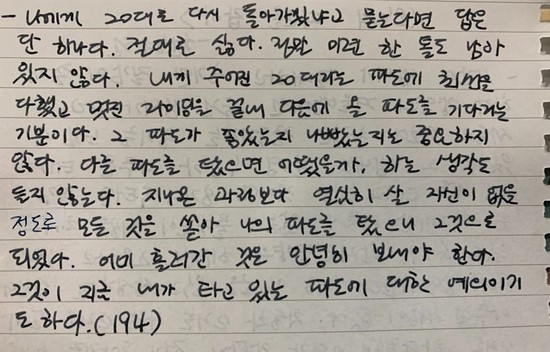 - 나에게 20대로 다시 돌아가겠냐고 묻는다면 답은
단 하나다. 절대로 싫다. 정말 미련 한 톨도 남아
있지 않다. 내게 주어진 20대라는 파도에 최선을
다했고 멋진 라이딩을 끝내 다음에 올 파도를 기다리는
기분이다. 그 파도가 좋았는지 나빴는지는 중요하지
않다. 다른 파도를 탔으면 어땠을까, 하는 생각도
들지 않는다. 지나온 과거보다 열심히 살 자신이 없을
정도로 모든 것을 쏟아 나의 파도를 탔으니 그것으로
되었다. 이미 흘러간 것은 안녕히 보내야 한다.
그것이 지금 내가 타고 있는 파도에 대한 예의이기
도 하다.(194)